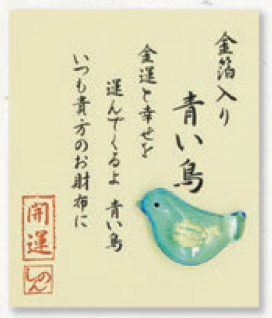 金箔入り
青い鳥
金運と幸せを
運んでくるよ 青い鳥
いつも貴方のお財布に
開運
しのん